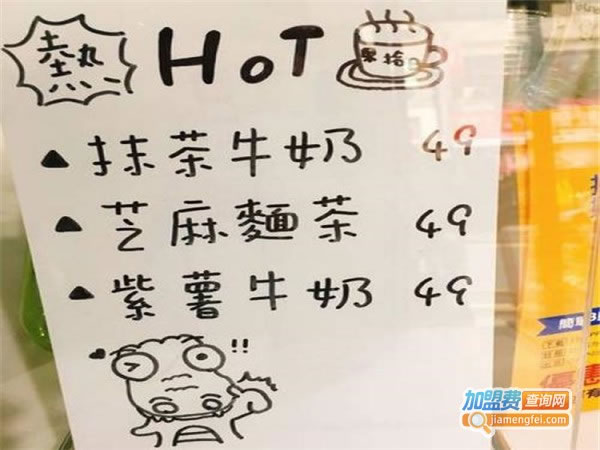 熱 HOT 果拾
▲ 抹茶牛奶 49
▲ 芝麻麵茶 49
▲ 紫薯牛奶 49
!!
加盟费查询网
jiamengfei.com